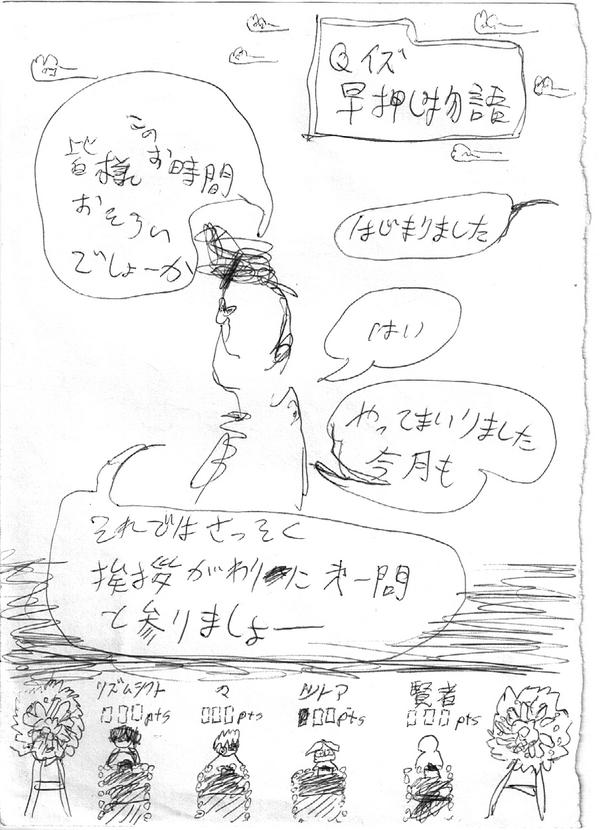 Qイズ
早押し物語
はじまりました
はい
やってまいりました
今月も
皆様
この
お時間
おそろい
でしょーか
それではさっそく
挨拶がわりに才一問
と参りましょー
リズムシフト
000pts
マ
000pts
000pts
賢者
000pts